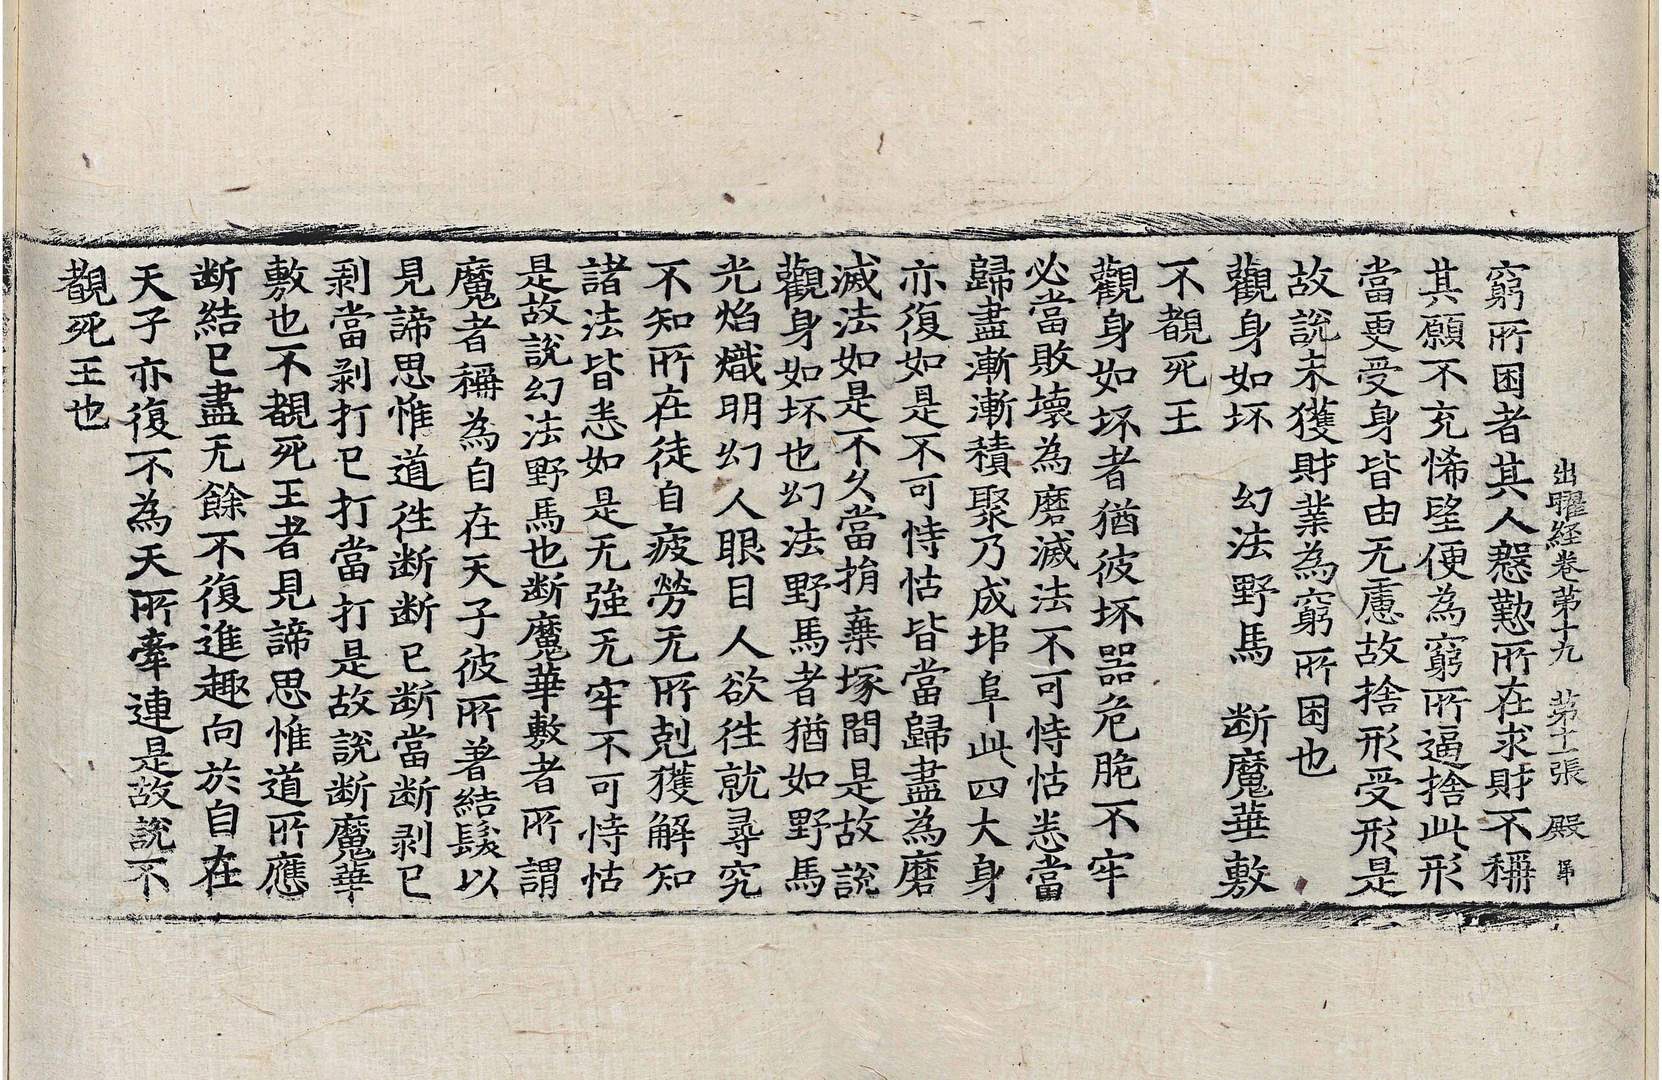 出曜経卷苐十九 苐十一張 殿
窮所困者其人慇懃所在求財不稱
其願不充悕望便為窮所逼捨此形
當更受身皆由无慮故捨形受形是
故說未獲財業為窮所困也
觀身如坏 幻法野馬 断魔華敷
不覩死王
觀身如坏者猶彼坏器危脆不牢
必當敗壞為磨滅法不可恃怙恚當
歸盡漸漸積聚乃成垖阜此四大身
亦復如是不可恃怙皆當歸盡為磨
滅法如是不久當捐棄塚間是故說
觀身如坏也幻法野馬者猶如野馬
光焰熾明幻人眼目人欲徃就尋究
不知所在徒自疲勞无所剋獲解知
諸法皆恚如是无強无牢不可恃怙
是故說幻法野馬也断魔華敷者所謂
魔者稱為自在天子彼所著結髮以
見諦思惟道徃断断已断當断剥已
剥當剥打已打當打是故說断魔華
敷也不覩死王者見諦思惟道所應
断結已盡无餘不復進趣向於自在
天子亦復不為天所牽連是故說不
覩死王也